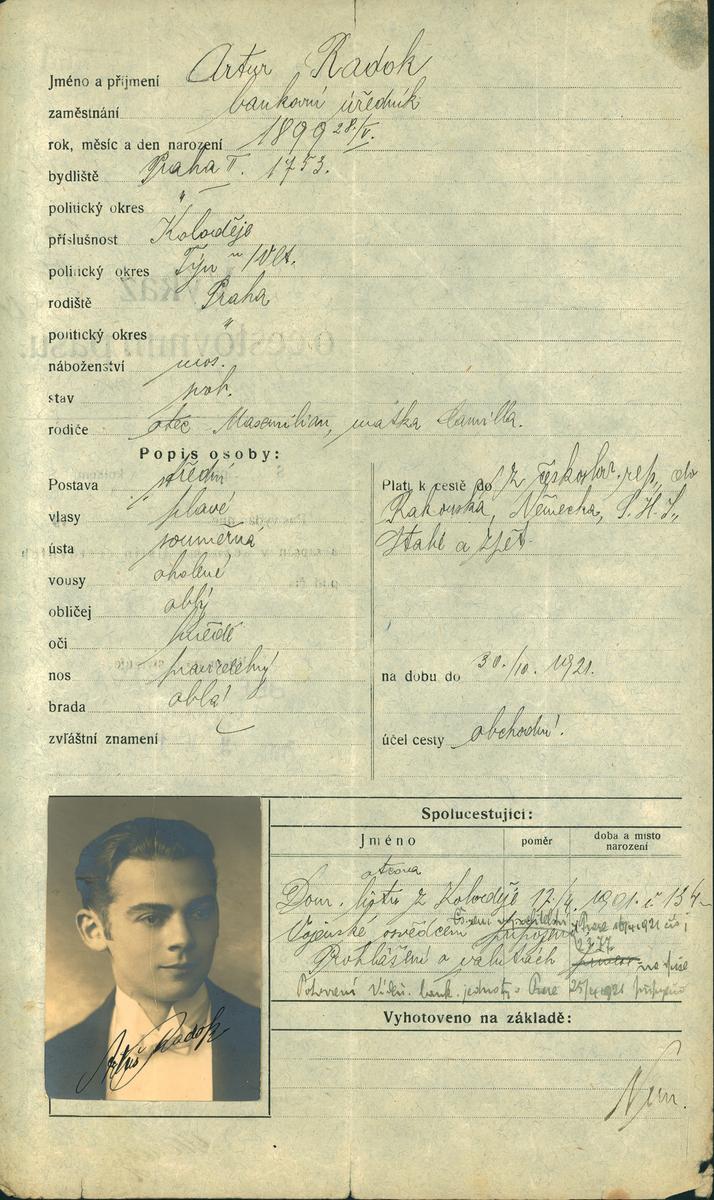 Jméno a příjmení Artur Radok
zaměstnání bankovní úředník
rok, měsíc a den narození 1899 28./V.
bydliště Praha II. 1753.
politický okres "
příslušnost Koloděje
politický okres Týn n/Vlt.
rodiště Praha
politický okres "
náboženství mos.
stav svob.
rodiče otec Maxmilian, matka Kamilla.
Popis osoby:
Postava střední
vlasy plavé
ústa souměrná
vousy oholené
obličej oblý
oči hnědé
nos pravidelný
brada oblá
zvláštní znamení
Platí k cestě do z českoslov. rep. do
Rakouska, Německa, S.H.S.,
Italie a zpět.
na dobu do 30./10. 1921.
účel cesty obchodní.
Artuš Radok
Spolucestující:
Jméno poměr doba a místo narození
otcova
Dom. listu z Koloděje 12/4. 1901. č 134
Vojenské osvědčení
Prohlášení o valutách
Potvrzení Vídeň. bank. jednoty v Praze 25/4 1921
Vyhotoveno na základě: